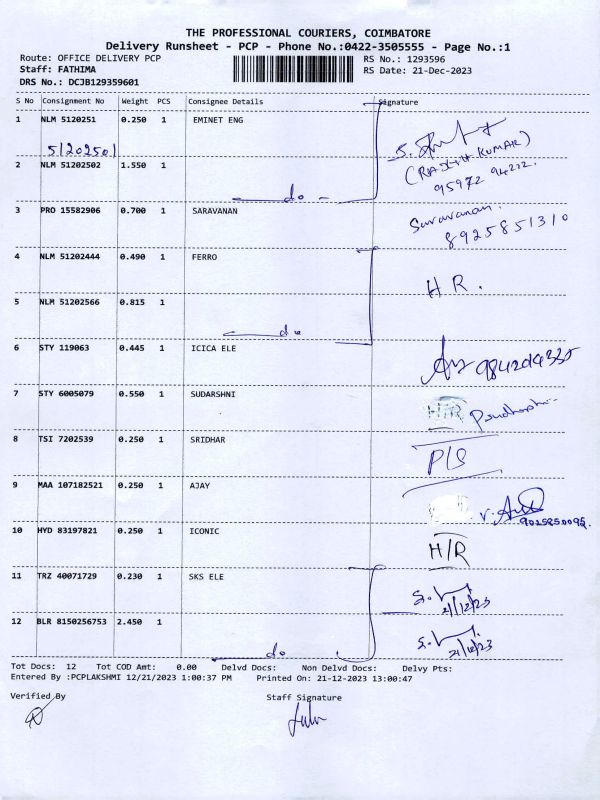 THE PROFESSIONAL COURIERS, COIMBATORE
Delivery Runsheet - PCP - Phone No.:0422-3505555 - Page No.:1
Route: OFFICE DELIVERY PCP RS No.: 1293596
Staff: FATHIMA RS Date: 21-Dec-2023
DRS No.: DCJB129359601
S No Consignment No Weight PCS Consignee Details Signature
1 NLM 5120251 0.250 1 EMINET ENG
51202501
2 NLM 51202502 1.550 1
(RAJITH KUMAR)
95972 94222.
do
3 PRO 15582906 0.700 1 SARAVANAN Saravanan.
8925851310
4 NLM 51202444 0.490 1 FERRO
H R.
5 NLM 51202566 0.815 1
do
6 STY 119063 0.445 1 ICICA ELE
7 STY 6005079 0.550 1 SUDARSHNI H/R
8 TSI 7202539 0.250 1 SRIDHAR
P/S
9 MAA 107182521 0.250 1 AJAY
9025850095.
10 HYD 83197821 0.250 1 ICONIC
H/R
11 TRZ 40071729 0.230 1 SKS ELE
21/12/23
12 BLR 8150256753 2.450 1
21/12/23
do
Tot Docs: 12 Tot COD Amt: 0.00 Delvd Docs: Non Delvd Docs: Delvy Pts:
Entered By :PCPLAKSHMI 12/21/2023 1:00:37 PM Printed On: 21-12-2023 13:00:47
Verified By Staff Signature